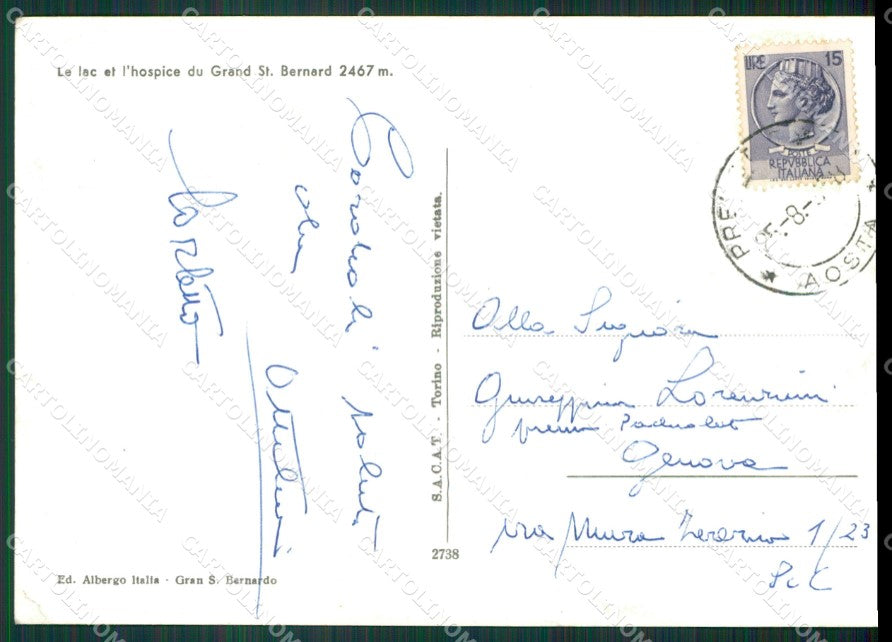 Le lac et l'hospice du Grand St. Bernard 2467 m.
Cordiali saluti
LIRE 15
POSTE
REPVBBLICA
ITALIANA
PRE
25.-8.
AOSTA
S.A.C.A.T. - Torino - Riproduzione vietata.
2738
Alla Signora
Giuseppina Lorenzini
presso
Genova
via Mura 1/23
Ed. Albergo Italia - Gran S. Bernardo
CARTOLINOMANIA